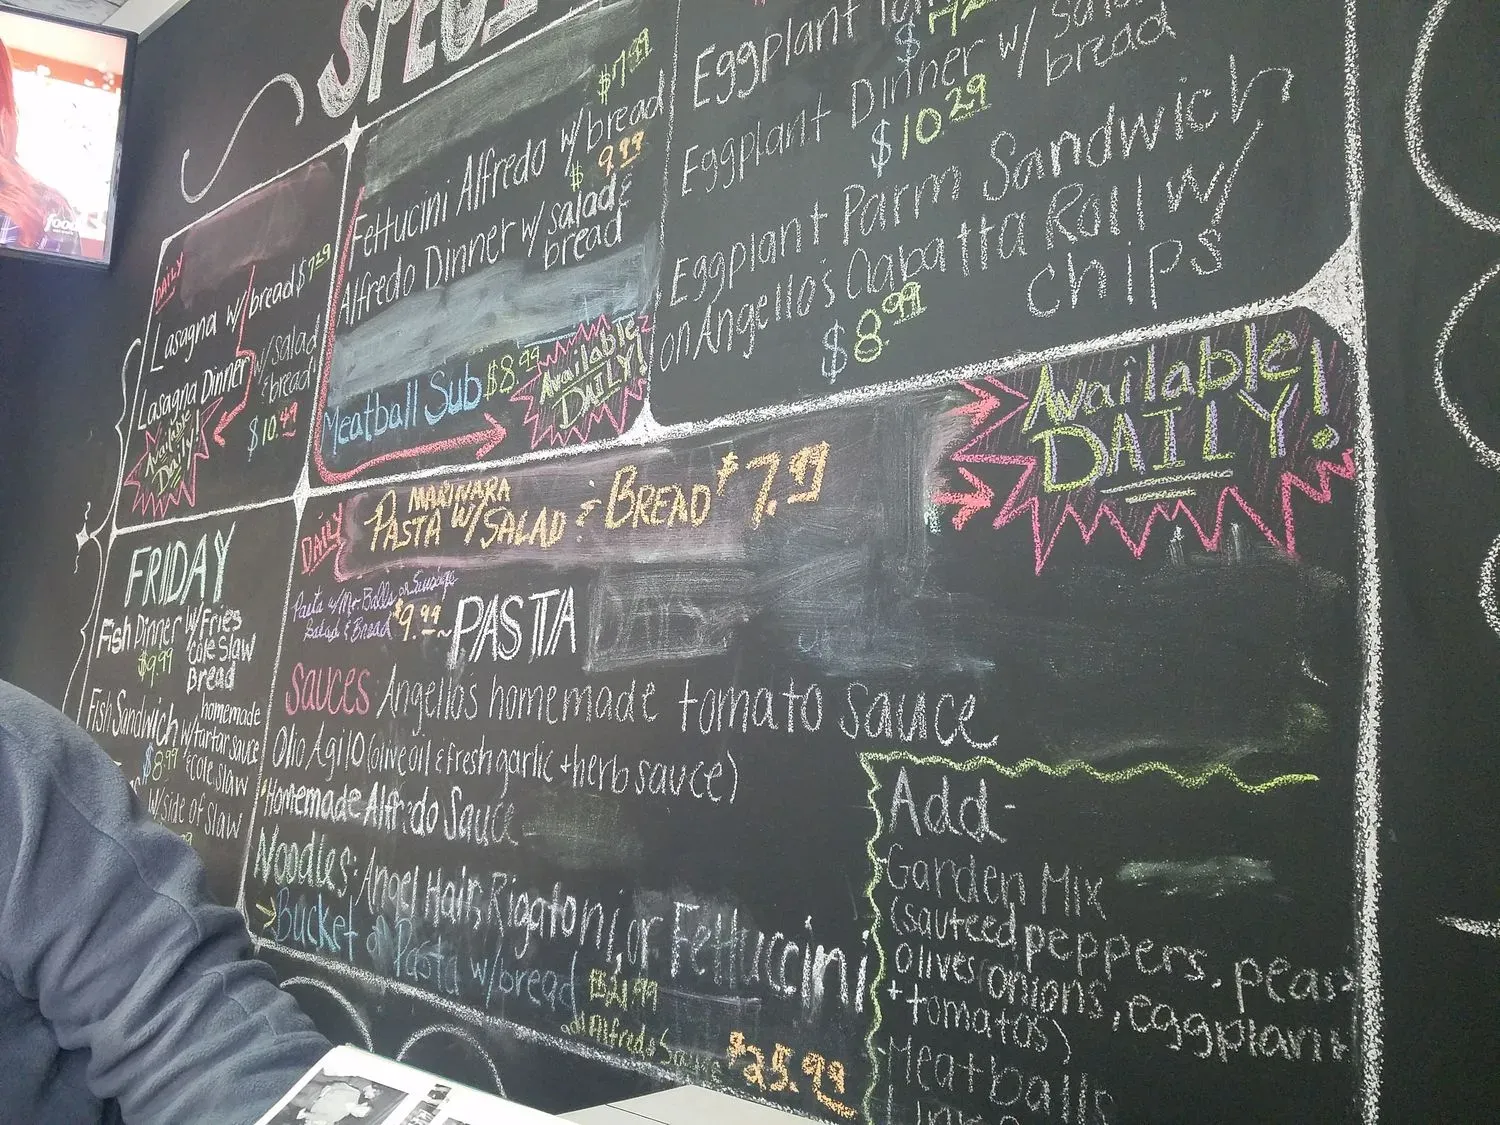 food
DAILY
Lasagna w/bread $7.29
Lasagna Dinner w/salad
& bread
$10.49
Available
Daily!
$7.99
Fettucini Alfredo w/bread
$9.99
Alfredo Dinner w/ salad &
bread
Meatball Sub $8.99
Available
DAILY!
Eggplant
Eggplant Dinner w/ salad
bread
$10.29
Eggplant Parm Sandwich
on Angello's Ciabatta Roll w/
chips
$8.99
Available
DAILY!
FRIDAY
Fish Dinner w/ Fries
Cole Slaw
Bread
$9.99
Fish Sandwich homemade
w/tartar sauce
& cole slaw
$8.99
w/side of slaw
DAILY
MARINARA
PASTA W/SALAD & BREAD $7.99
Pasta w/Mt. Balls or Sausage
Salad & Bread $9.99
~PASTA
SAUCES Angello's homemade tomato sauce
Olio Aglio (olive oil & fresh garlic + herb sauce)
Homemade Alfredo Sauce
Noodles: Angel Hair, Riggtoni, or Fettuccini
Bucket of Pasta w/bread $21.99
add Alfredo Sauce $25.99
Add-
Garden Mix
(sauteed peppers, peas
olives, onions, eggplant
+ tomatos)
Meatballs